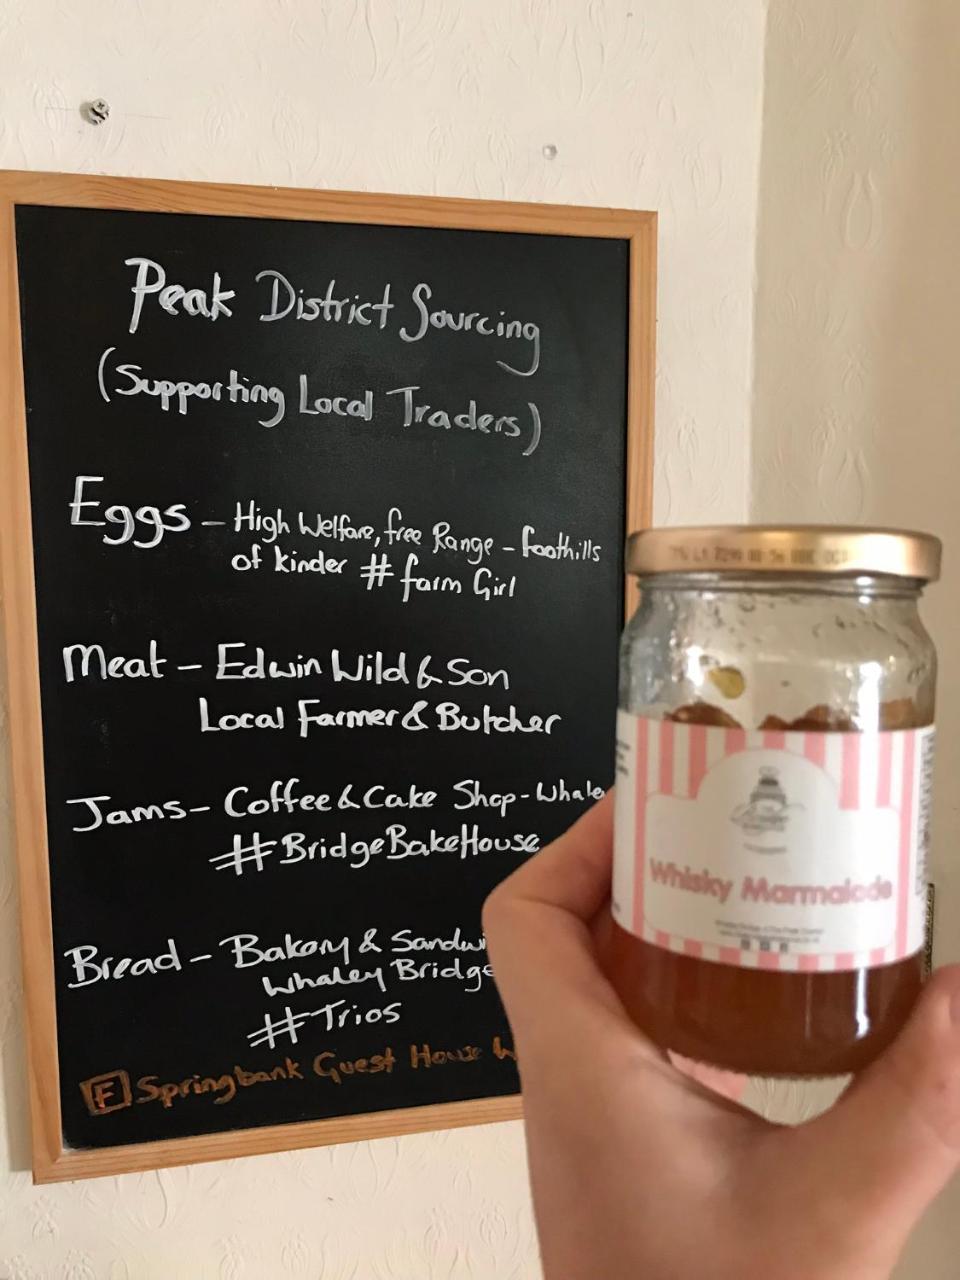 Peak District Sourcing
(Supporting Local Traders)
Eggs - High Welfare, free Range - foothills
of kinder # farm Girl
Meat - Edwin Wild & Son
Local Farmer & Butcher
Jams - Coffee & Cake Shop - Whale
#BridgeBakeHouse
Bread - Bakery & Sandwi
Whaley Bridge
#Trios
F Springbank Guest House W
Whisky Marmalade